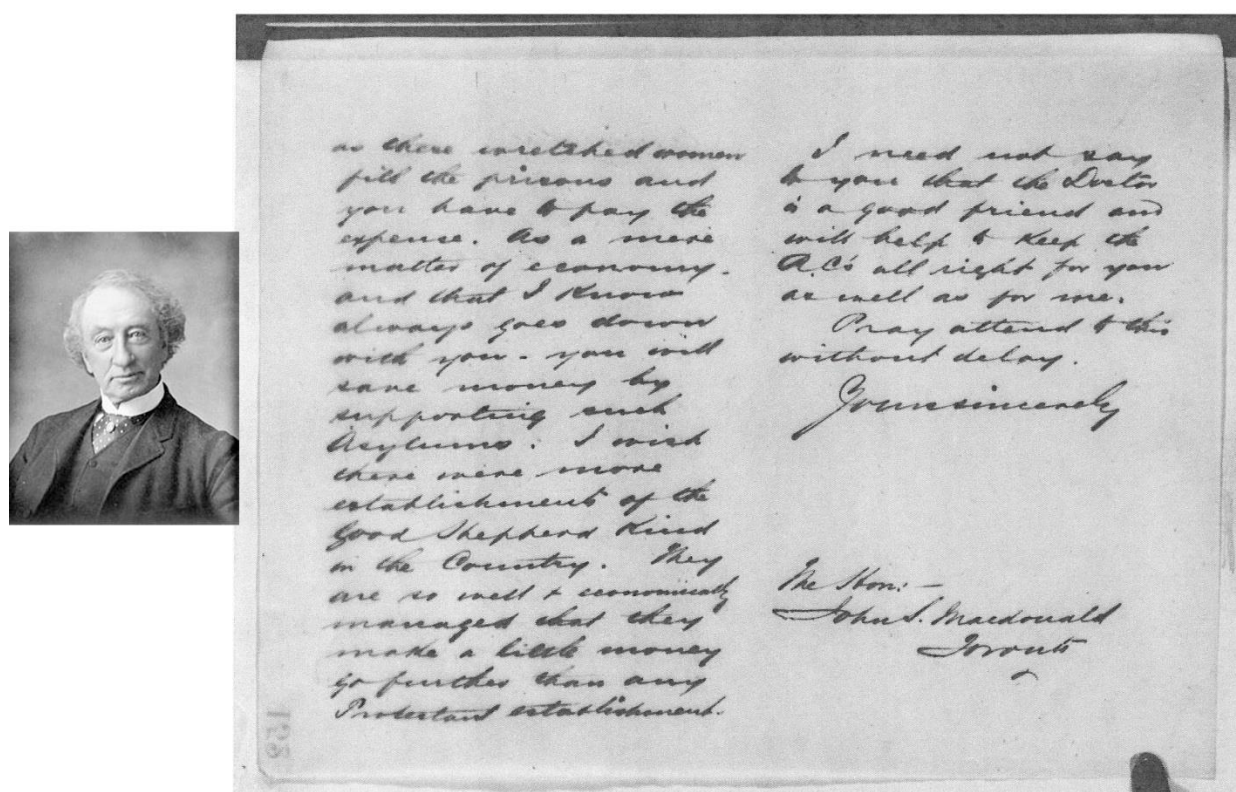 as these wretched women
fill the prisons and
you have to pay the
expense. As a mere
matter of economy -
and that I know
always goes down
with you - you will
save money by
supporting such
Asylums. I wish
there were more
establishments of the
Good Shepherd Kind
in the Country. They
are so well & economically
managed that they
make a little money
go further than any
Protestant establishment.
I need not say
to you that the Doctor
is a good friend and
will help to keep the
R.C's all right for you
as well as for me.
Pray attend to this
without delay.
Yours sincerely
The Hon: -
John S. Macdonald
Toronto